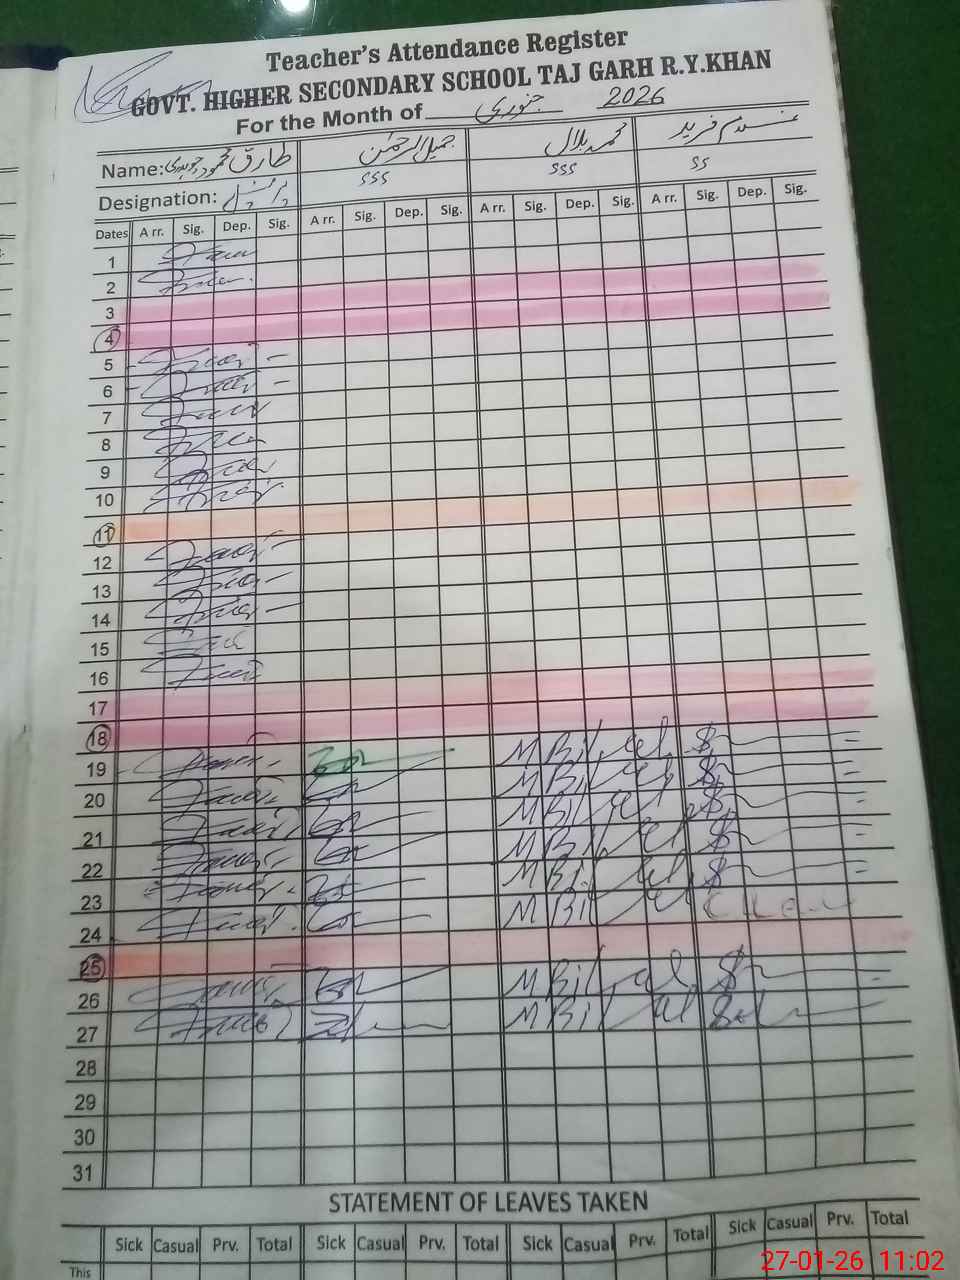 Teacher's Attendance Register
GOVT. HIGHER SECONDARY SCHOOL TAJ GARH R.Y.KHAN
For the Month of جنوری 2026
Name: طارق محمود جمیل الرحمٰن محمد بلال غلام فرید
Designation: SSS SSS SS
Dates Arr. Sig. Dep. Sig. Arr. Sig. Dep. Sig. Arr. Sig. Dep. Sig. Arr. Sig. Dep. Sig.
1
2
3
4
5
6
7
8
9
10
11
12
13
14
15
16
17
18
19 M Bilal
20 M Bilal
21 M Bilal
22 M Bilal
23 M Bilal
24 M Bil
25
26 M Bilal
27 M Bilal
28
29
30
31
STATEMENT OF LEAVES TAKEN
Sick Casual Prv. Total Sick Casual Prv. Total Sick Casual Prv. Total Sick Casual Prv. Total
This
27-01-26 11:02